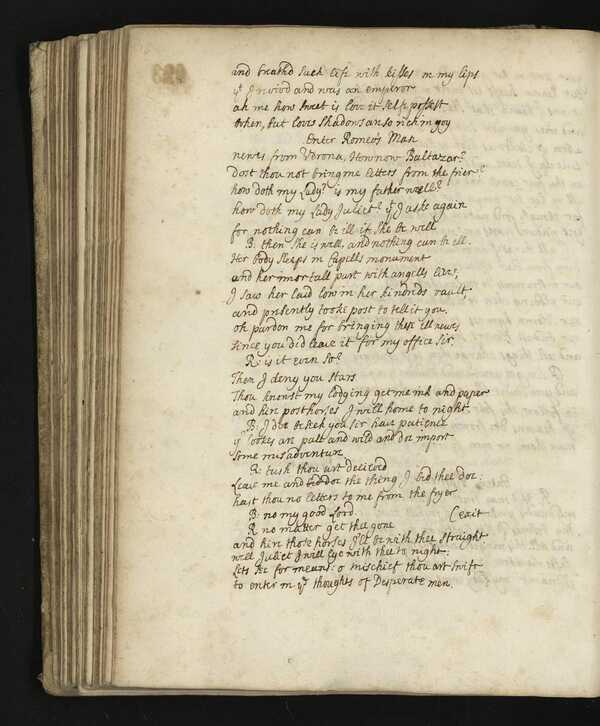 and breathd such life with kisses in my lips
yt I revivd and was an emperor
ah me how sweet is love it self possest
when, but loves shadows are so rich in yoy
Enter Romeo's Man
newes from Verona, How now Baltazar?
dost thou not bring me letters from the frier?
how doth my Lady? is my father well?
how doth my Lady Juliet? yt I aske again
for nothing can be ill if she be well
B. then she is well, and nothing can be ill.
Her body sleeps in Capells monument
and her imortall part with angells lives,
I saw her laid low in her kindreds vault,
and presently tooke post to tell it you.
oh pardon me for bringing these ill newes
since you did leave it for my office sir.
R: is it even so?
Then I deny you stars
Thou knowst my lodging get me ink and paper
and hire posthorses I will home to night.
B: I doe beseech you sir have patience
yr lookes are pale and wild and doe import
some misadventure
R: tush thou art deceivd
Leave me and doe the thing I bid thee doe.
hast thou no letters to me from the fryer
B: no my good Lord.
R no matter get thee gone (exit
and hire those horses I'le be with thee straight
well Juliet I will lye with thee to night:
lets see for means: o mischief thou art swift
to enter in ye thoughts of Desperate men.